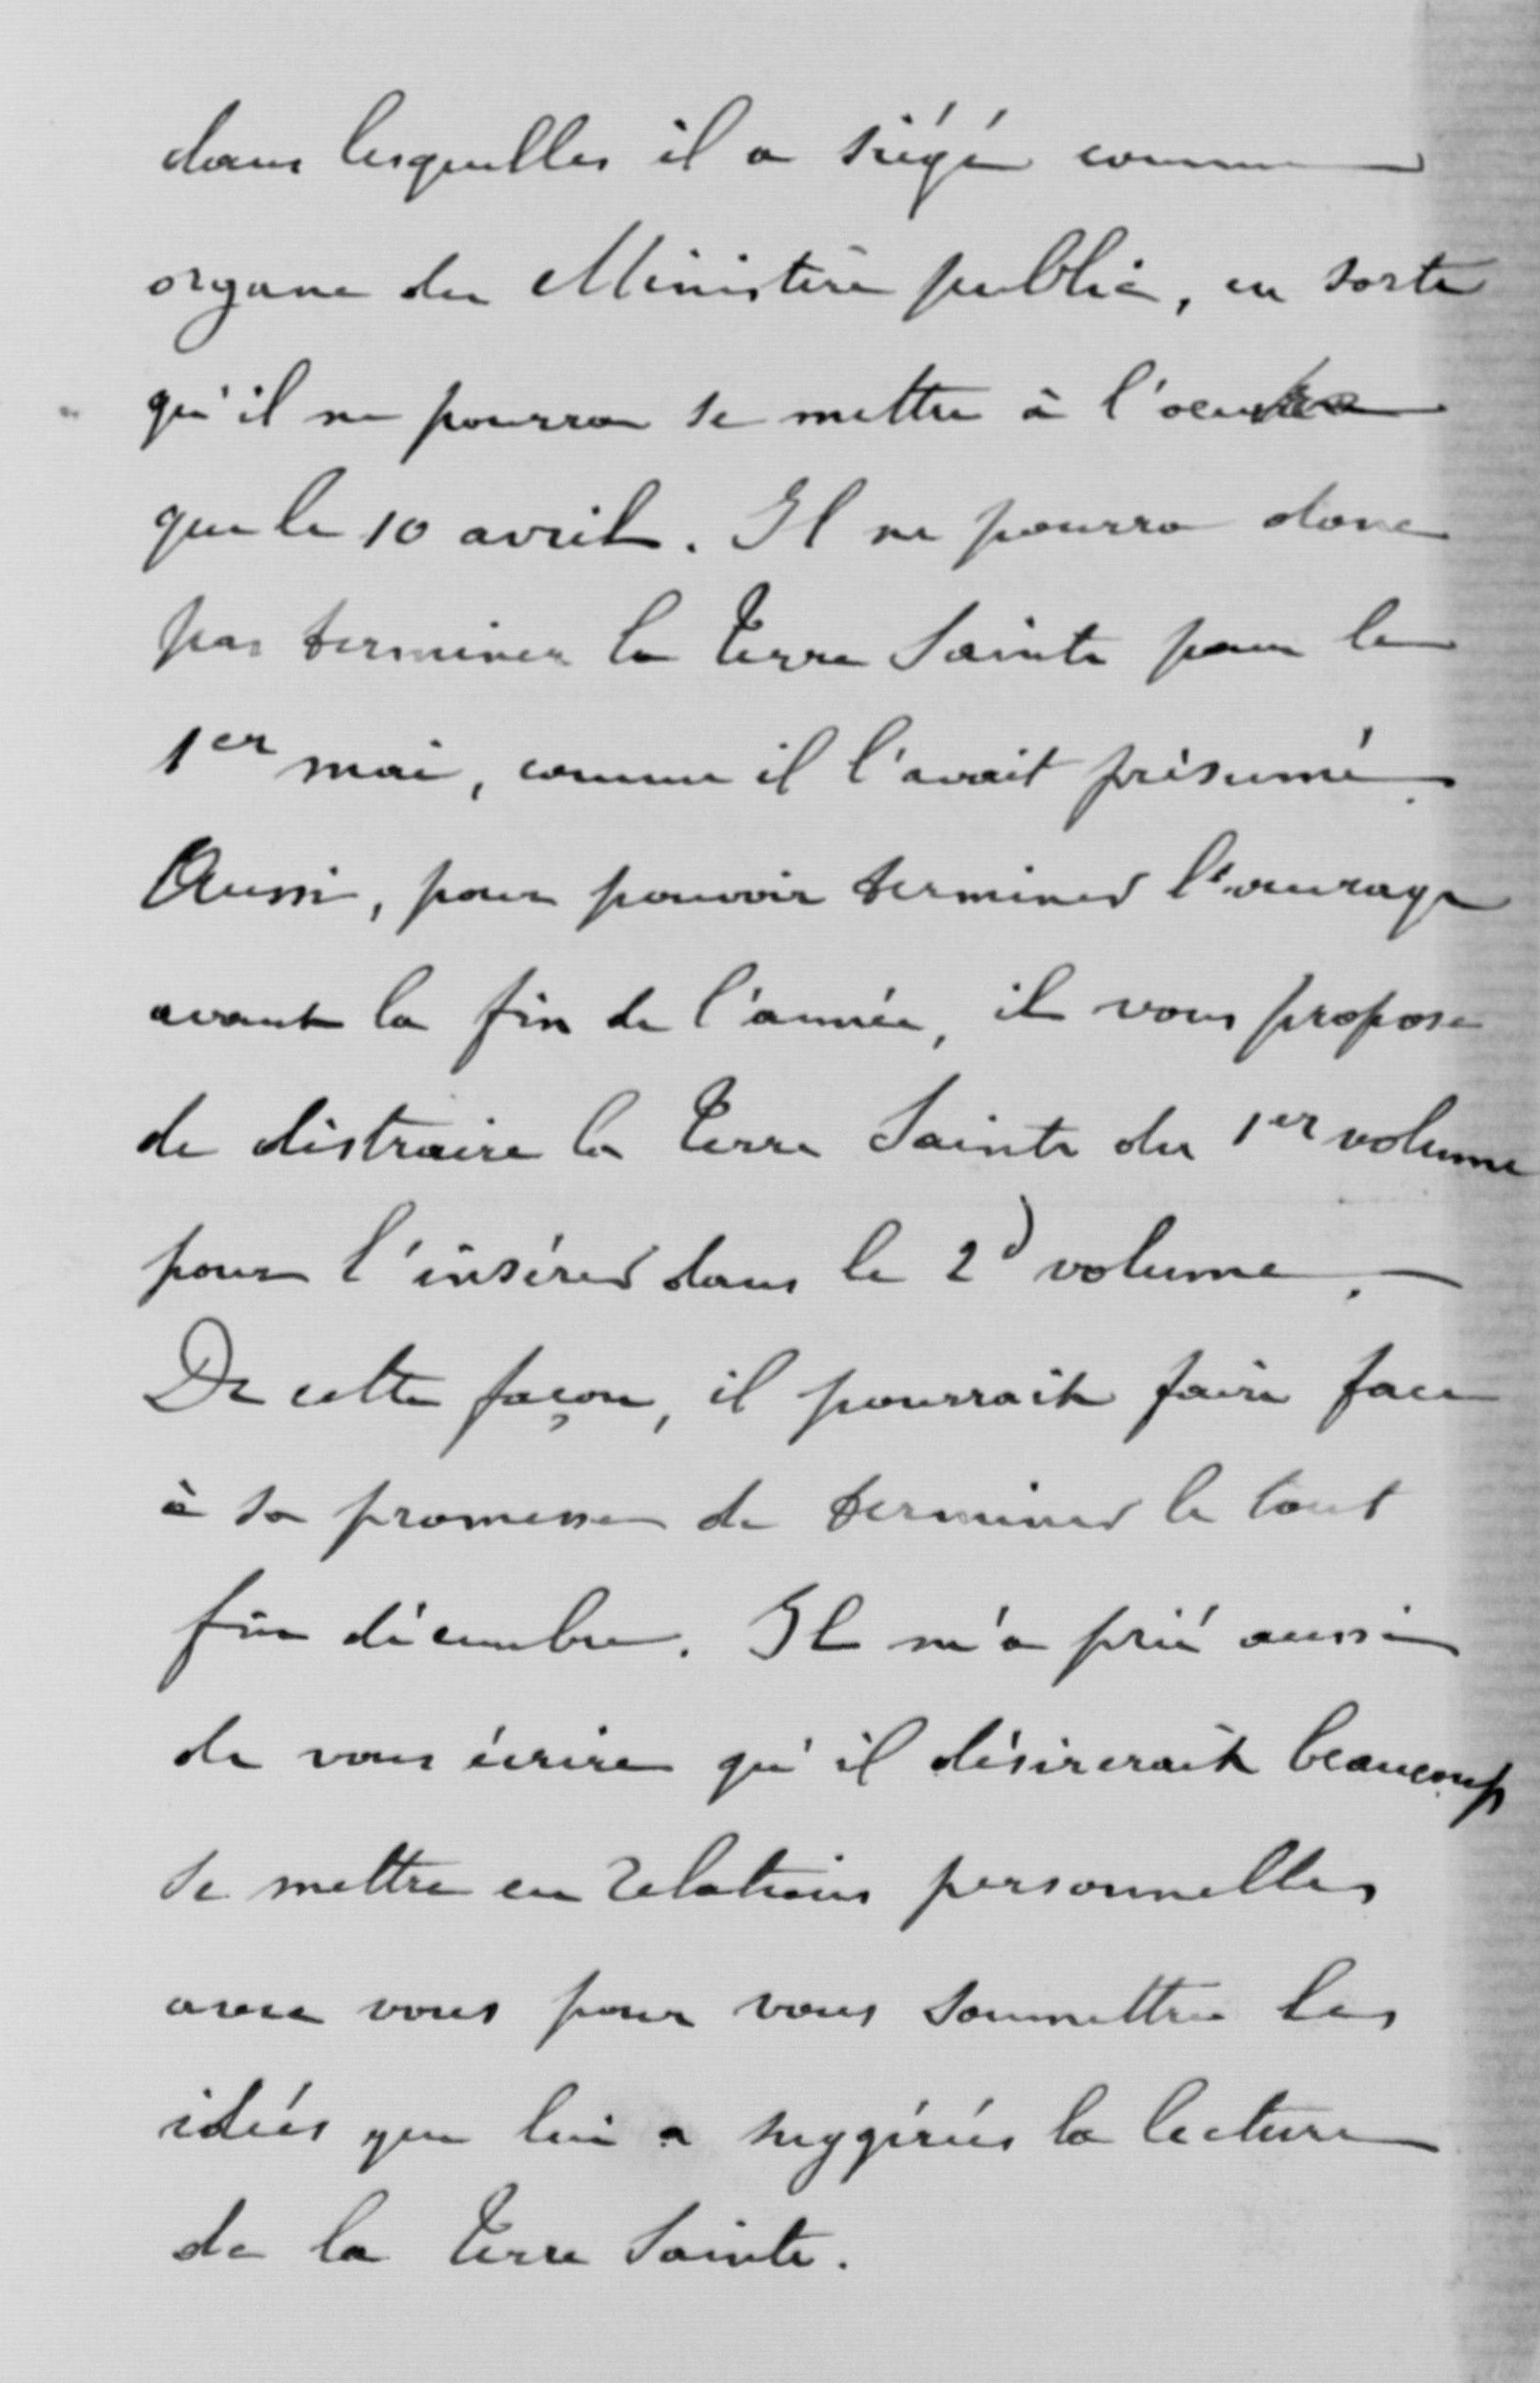 dans lesquelles il a siégé comme
organe du Ministère public, en sorte
qu'il ne pourra se mettre à l'oeuvre
que le 10 avril. Il ne pourra donc
pas terminer la Terre Sainte pour le
1er mai, comme il l'avait présumé.
Aussi, pour pouvoir terminer l'ouvrage
avant la fin de l'année, il vous propose
de distraire la Terre Sainte du 1er volume
pour l'insérer dans le 2d volume. —
De cette façon, il pourrait faire face
à sa promesse de terminer le tout
fin décembre. Il m'a prié aussi
de vous écrire qu'il désirerait beaucoup
se mettre en relations personnelles
avec vous pour vous soumettre les
idées que lui a suggérées la lecture
de la Terre Sainte.